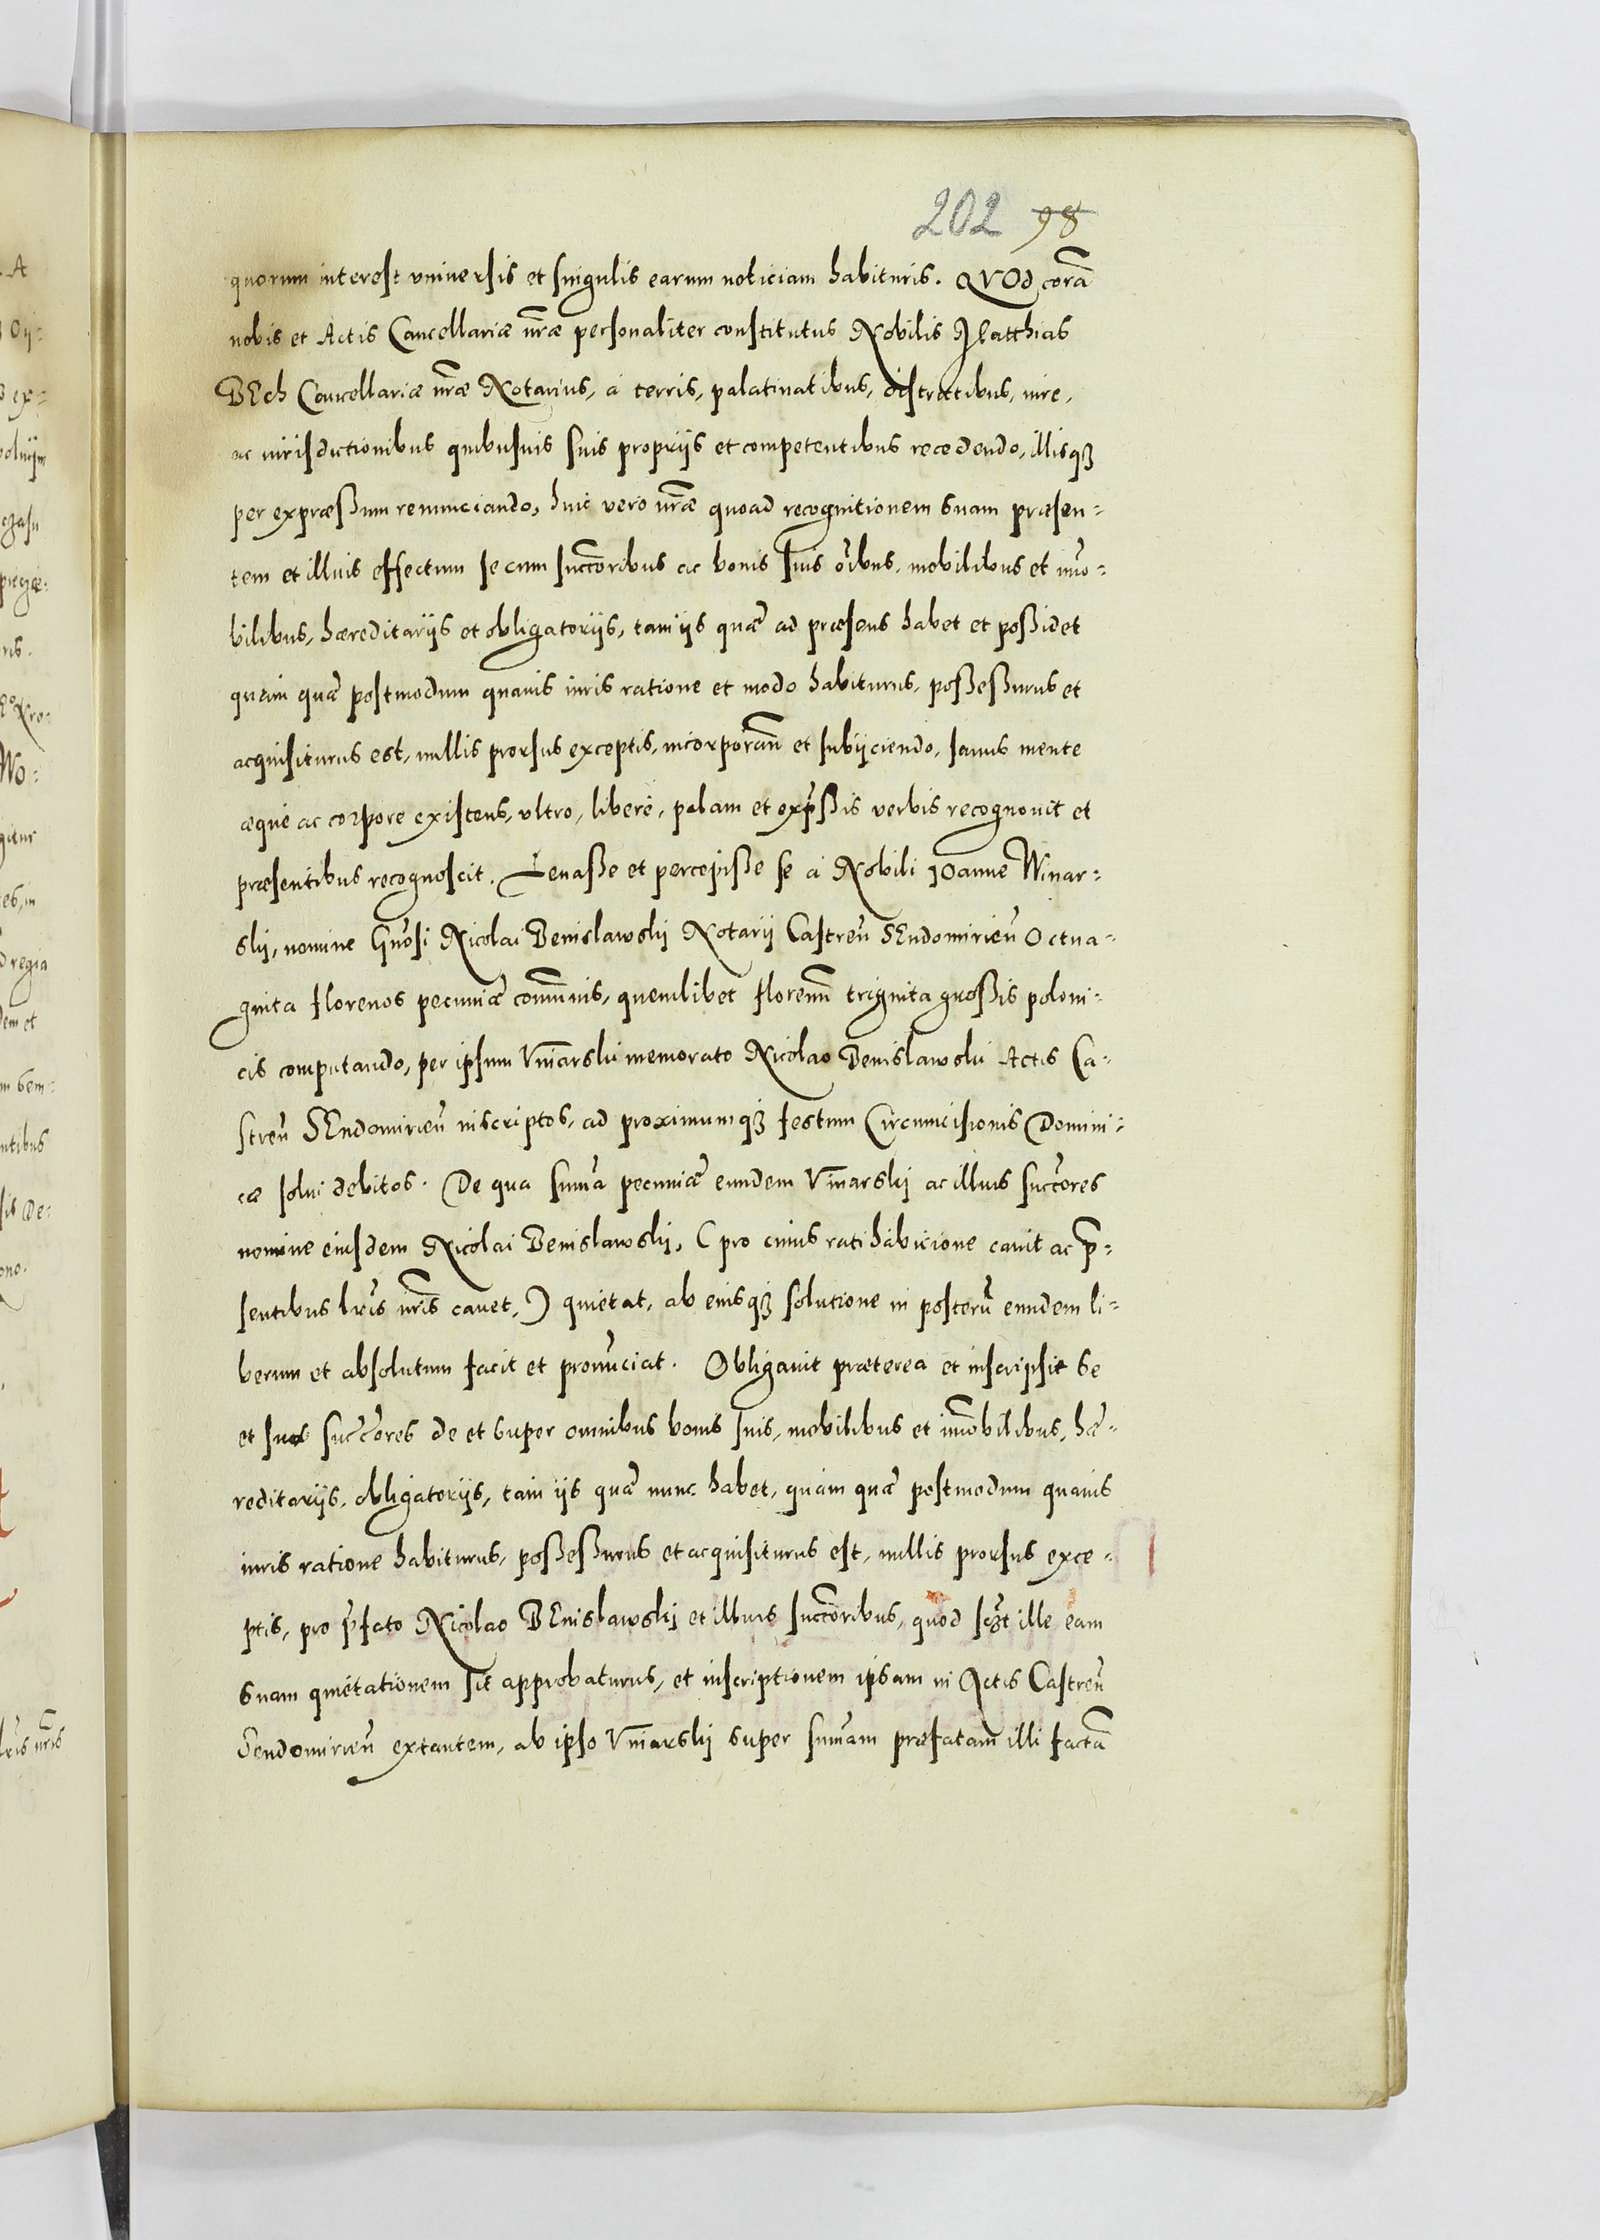 202 98
quorum interest vniuersis et singulis earum noticiam habituris. QVOd corã
nobis et Actis Cancellariæ nr̃æ personaliter constitutus Nobilis Matthias
BEch Cancellariæ nr̃æ Notarius, à terris, palatinatibus, districtibus, iure,
ac iurisdictionibus quibusuis suis proprijs et competentibus recedendo, illisqꝫ
per expræßum renunciando, huic vero nr̃æ quoad recognitionem suam præsen-
tem et illius effectum se cum succ̃oribus ac bonis suis oĩbus, mobilibus et im̃o-
bilibus, hæreditarijs et obligatorijs, tam ijs quæ ad præsens habet et poßidet
quàm quæ postmodum quauis iuris ratione et modo habiturus, poßeßurus et
acquisiturus est, nullis prorsus exceptis, incorporan̄ et subijciendo, sanus mente
æquè ac corpore existens, vltro, liberè, palam et exp̃ßis verbis recognouit et
præsentibus recognoscit. Leuaße et percepiße se à Nobili IOanne Winar-
skj, nomine Gñosi Nicolai Benislawskj Notarij Castreñ SEndomirieñ Octua-
ginta florenos pecuniæ com̃unis, quemlibet floren̄u triginta großis poloni-
cis computando, per ipsum Vinarskij memorato Nicolao Benislawski Actis Ca-
streñ SEndomirieñ inscriptos, ad proximumqꝫ festum Circumcisionis Domini-
cæ solui debitos. De qua sum̃a pecuniæ eundem Vinarskj ac illius succ̃ores
nomine eiusdem Nicolai Benislawskj, (pro cuius ratihabicione cauit ac p̃-
sentibus lr̃is nr̃is cauet,) quietat, ab eiusqꝫ solutione in posterũ eundem li-
berum et absolutum facit et pronũciat. Obligauit præterea et inscripsit se
et suos succ̃ores de et super omnibus bonis suis, mobilibus et im̃obilibus, hæ-
reditarijs, obligatorijs, tàm ijs quæ nunc habet, quàm quæ postmodum quauis
iuris ratione habiturus, poßeßurus et acquisiturus est, nullis prorsus exce-
ptis, pro p̃fato Nicolao BEnislawskj et illius succ̃oribus, quod scꝫt ille eam
suam quietationem sit approbaturus, et inscriptionem ipsam in Actis Castreñ
Sendomirieñ extantem, ab ipso Vinarskj super sum̃am præfatam illi factã